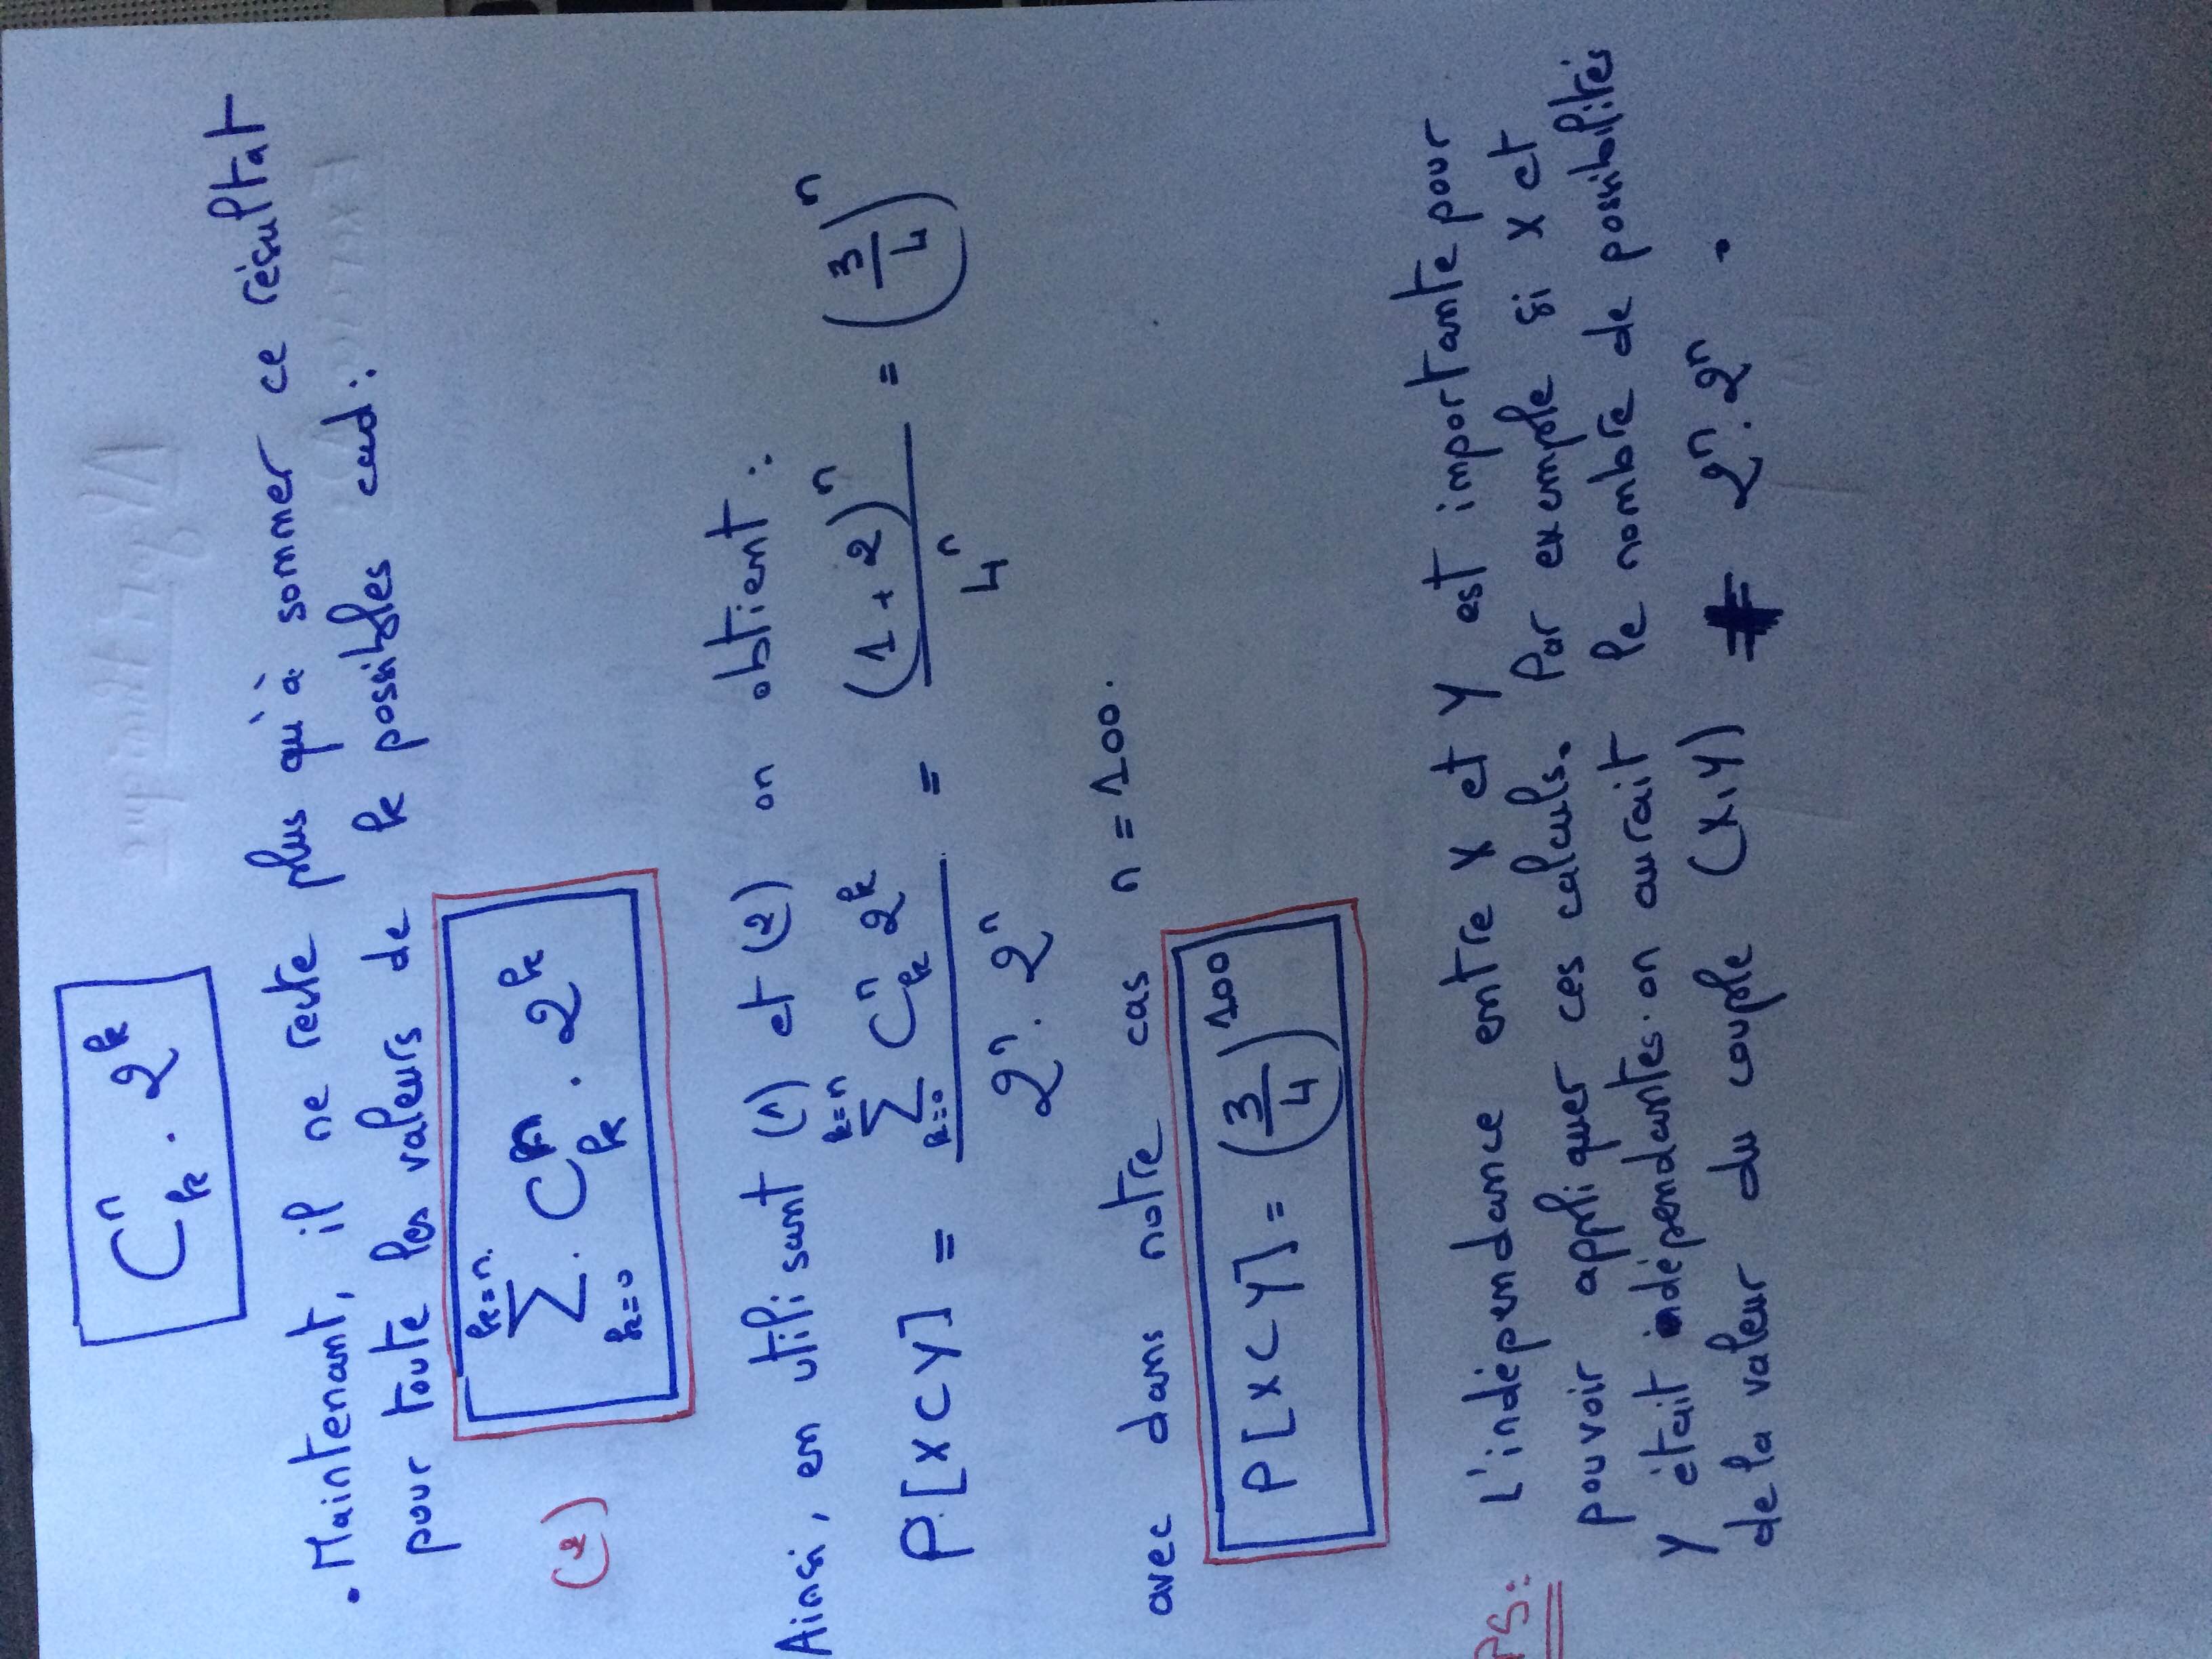 C^n_k . 2^k
. Maintenant, il ne reste plus qu'à sommer ce résultat
pour toute les valeurs de k possibles cad :
(2) k=n ∑ k=0 . C^n_k . 2^k
Ainsi, en utilisant (1) et (2) on obtient :
P[X⊂Y] = (∑_{k=0}^{k=n} C^n_k 2^k) / (2^n . 2^n) = (1+2)^n / 4^n = (3/4)^n
avec dans notre cas n = 100.
P[X⊂Y] = (3/4)^100
PS: L'indépendance entre X et Y est importante pour
pouvoir appliquer ces calculs. Par exemple si X et
Y était indépendantes. on aurait le nombre de possibilités
de la valeur du couple (X,Y) 2^n . 2^n .